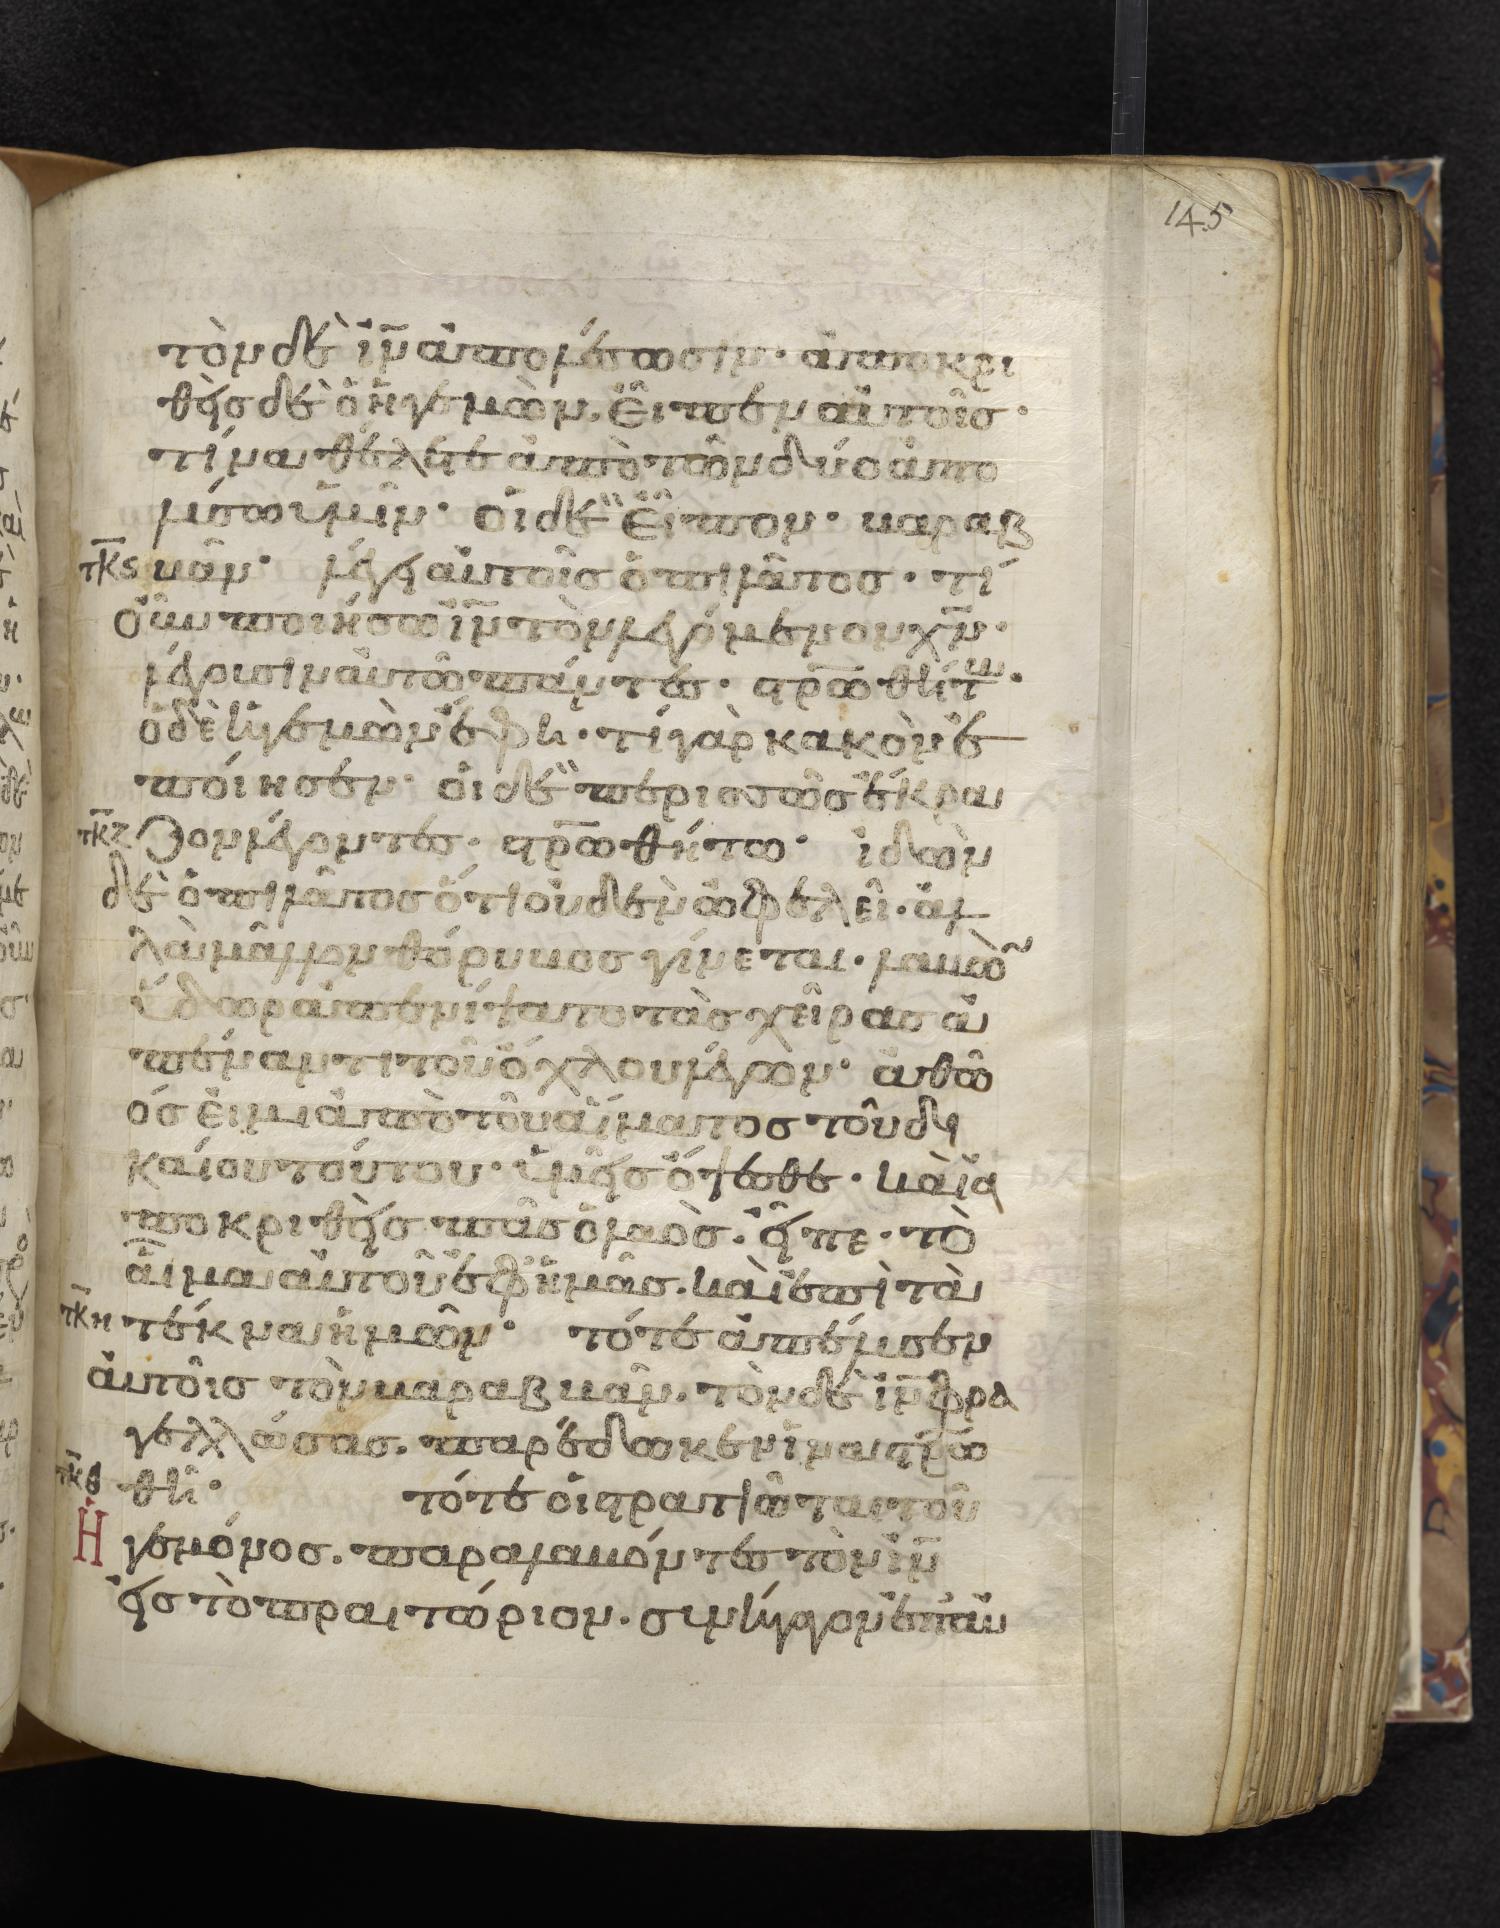 145
τὸν δὲ ἰ̅ν̅ ἀπολέσωσιν· ἀποκρι
θεὶς δὲ ὁ ἡγεμὼν. εἶπεν αὐτοῖς·
τίνα θέλετε ἀπὸ τῶν δύο ἀπο
λύσω ὑμῖν· οἱ δὲ εἶπον· βαραβ
τ̅κ̅ϛ βᾶν· λέγει αὐτοῖς ὁ πιλᾶτος· τί
οὖν ποιήσω ἰ̅ν̅ τὸν λεγόμενον χ̅ν̅·
λέγουσιν αὐτῶ πάντες· σ̅ρ̅ωθήτω·
ὁ δὲ ἡγεμὼν ἔφη· τί γὰρ κακὸν ἐ
ποίησεν· οἱ δὲ περισσῶς ἔκρα
τ̅κ̅ζ ζον λέγοντες· σ̅ρ̅ωθήτω· ἰδὼν
δὲ ὁ πιλᾶτος ὅτι οὐδὲν ὠφελεῖ· ἀλ
λὰ μᾶλλον θόρυβος γίνεται· λαβὼν
ὕδωρ ἀπενίψατο τὰς χεῖρας ἀ
πέναντι τοῦ ὄχλου λέγων· ἀθῶ
ός εἰμι ἀπὸ τοῦ αἵματος τοῦ δι
καίου τούτου· ὑμεῖς ὄψεσθε· καὶ ἀ
ποκριθεὶς πᾶς ὁ λαὸς. εἶπε· τὸ
αἷμα αὐτοῦ ἐφ ἡμᾶς. καὶ ἐπὶ τὰ
τ̅κ̅η τέκνα ἡμῶν· τότε ἀπέλυσεν
αὐτοῖς τὸν βαραββᾶν. τὸν δὲ ἰ̅ν̅ φρα
γελλώσας. παρέδωκεν ἵνα σ̅ρ̅ω
τ̅κ̅θ θῆ· τότε οἱ στρατιῶται τοῦ
Ἡγεμόνος. παραλαβόντες τὸν ἰ̅ν̅
εἰς τὸ πραιτώριον. συνήγαγον ἐπ αὐ